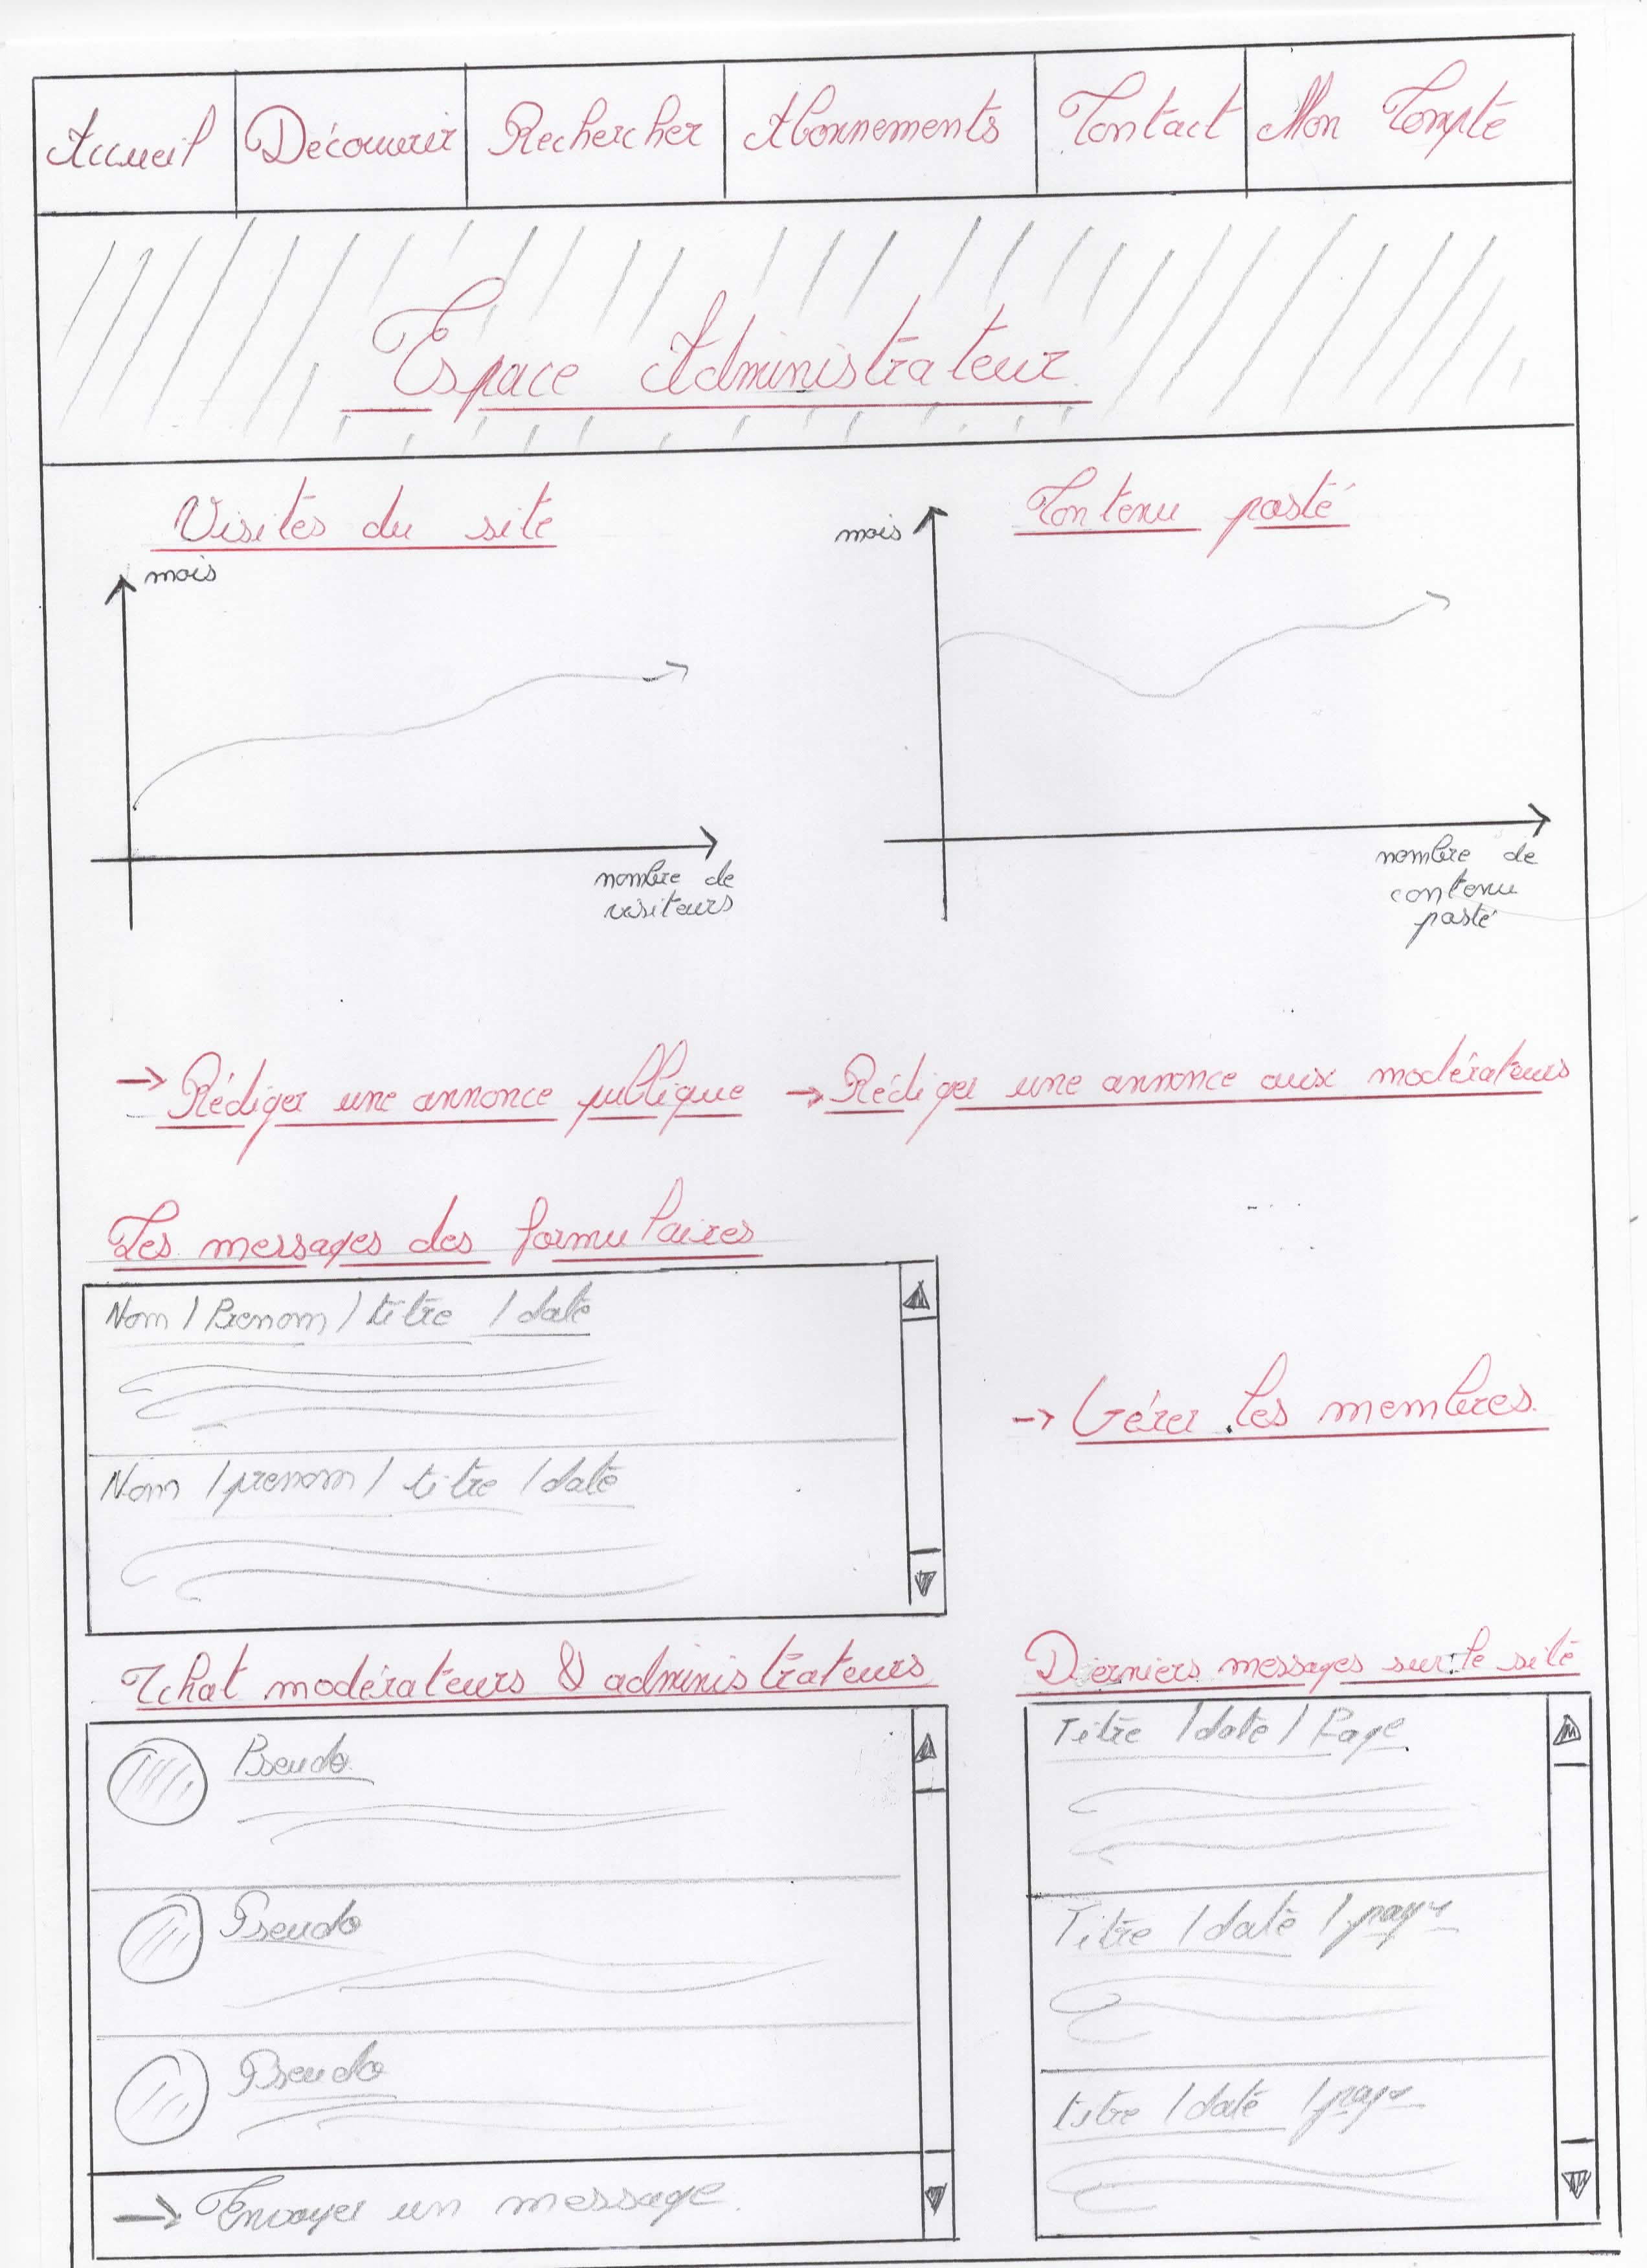 Accueil Découvrir Rechercher Abonnements Contact Mon Compte
Espace Administrateur
Visites du site
mois
nombre de
visiteurs
Contenu posté
mois
nombre de
contenu
posté
→ Rédiger une annonce publique
→ Rédiger une annonce aux modérateurs
Les messages des formulaires
Nom / Prenom / titre / date
Nom / prenom / titre / date
→ Gérer les membres
Tchat modérateurs & administrateurs
Pseudo
Pseudo
Pseudo
→ Envoyer un message
Derniers messages sur le site
Titre / date / Page
Titre / date / page
titre / date / page